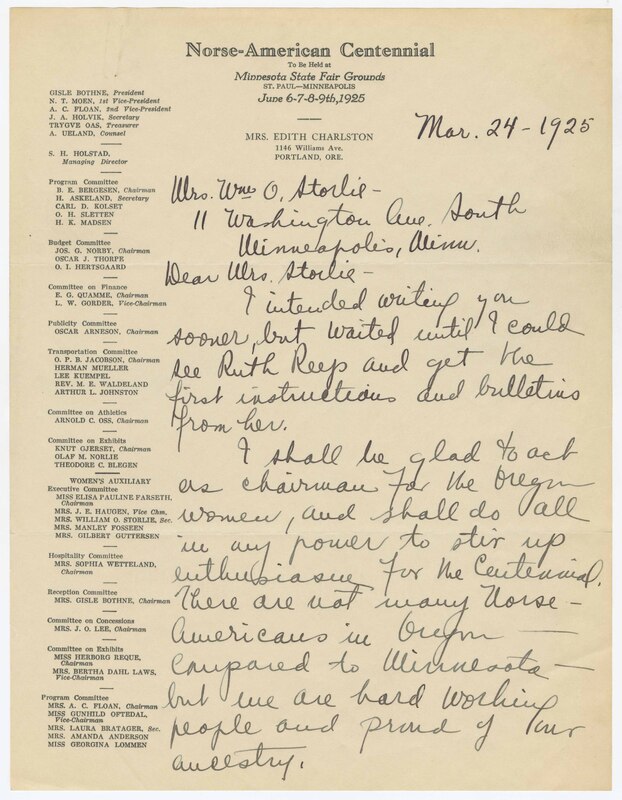 Norse-American Centennial
To Be Held at
Minnesota State Fair Grounds
ST. PAUL—MINNEAPOLIS
June 6-7-8-9th, 1925
MRS. EDITH CHARLSTON
1146 Williams Ave.
PORTLAND, ORE.
GISLE BOTHNE, President
N. T. MOEN, 1st Vice-President
A. C. FLOAN, 2nd Vice-President
J. A. HOLVIK, Secretary
TRYGVE OAS, Treasurer
A. UELAND, Counsel
S. H. HOLSTAD,
Managing Director
Program Committee
B. E. BERGESEN, Chairman
H. ASKELAND, Secretary
CARL D. KOLSET
O. H. SLETTEN
H. K. MADSEN
Budget Committee
JOS. G. NORBY, Chairman
OSCAR J. THORPE
O. I. HERTSGAARD
Committee on Finance
E. G. QUAMME, Chairman
L. W. GORDER, Vice-Chairman
Publicity Committee
OSCAR ARNESON, Chairman
Transportation Committee
O. P. B. JACOBSON, Chairman
HERMAN MUELLER
LEE KUEMPEL
REV. M. E. WALDELAND
ARTHUR L. JOHNSTON
Committee on Athletics
ARNOLD C. OSS, Chairman
Committee on Exhibits
KNUT GJERSET, Chairman
OLAF M. NORLIE
THEODORE C. BLEGEN
WOMEN'S AUXILIARY
Executive Committee
MISS ELISA PAULINE FARSETH,
Chairman
MRS. J. E. HAUGEN, Vice Chm.
MRS. WILLIAM O. STORLIE, Sec.
MRS. MANLEY FOSSEEN
MRS. GILBERT GUTTERSEN
Hospitality Committee
MRS. SOPHIA WETTELAND,
Chairman
Reception Committee
MRS. GISLE BOTHNE, Chairman
Committee on Concessions
MRS. J. O. LEE, Chairman
Committee on Exhibits
MISS HERBORG REQUE,
Chairman
MRS. BERTHA DAHL LAWS,
Vice-Chairman
Program Committee
MRS. A. C. FLOAN, Chairman
MISS GUNHILD OFTEDAL,
Vice-Chairman
MRS. LAURA BRATAGER, Sec.
MRS. AMANDA ANDERSON
MISS GEORGINA LOMMEN
Mar. 24-1925
Mrs. Wm O. Storlie-
11 Washington Ave. South
Minneapolis, Minn.
Dear Mrs. Storlie-
I intended writing you
sooner, but waited until I could
see Ruth Reep and get the
first instructions and bulletins
from her.
I shall be glad to act
as chairman for the Oregon
women, and shall do all
in my power to stir up
enthusiasm for the Centennial.
There are not many Norse-
Americans in Oregon —
compared to Minnesota—
but we are hard working
people and proud of our
ancestry.